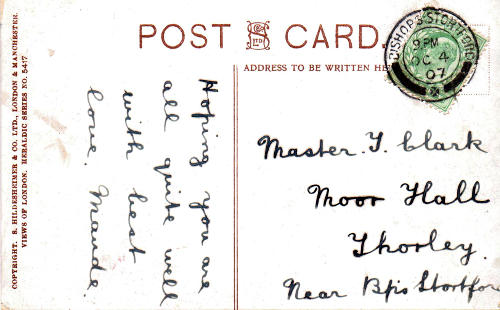 POST CARD
ADDRESS TO BE WRITTEN HE
BISHOP'S STORTFORD
9 PM
OC 4
07
COPYRIGHT. S. HILDESHEIMER & CO. LTD., LONDON & MANCHESTER.
VIEWS OF LONDON. HERALDIC SERIES NO. 5417
Hoping you are
all quite well
with best
love. Maude.
Master. T. Clark
Moor Hall
Thorley.
Near Bps Stortford